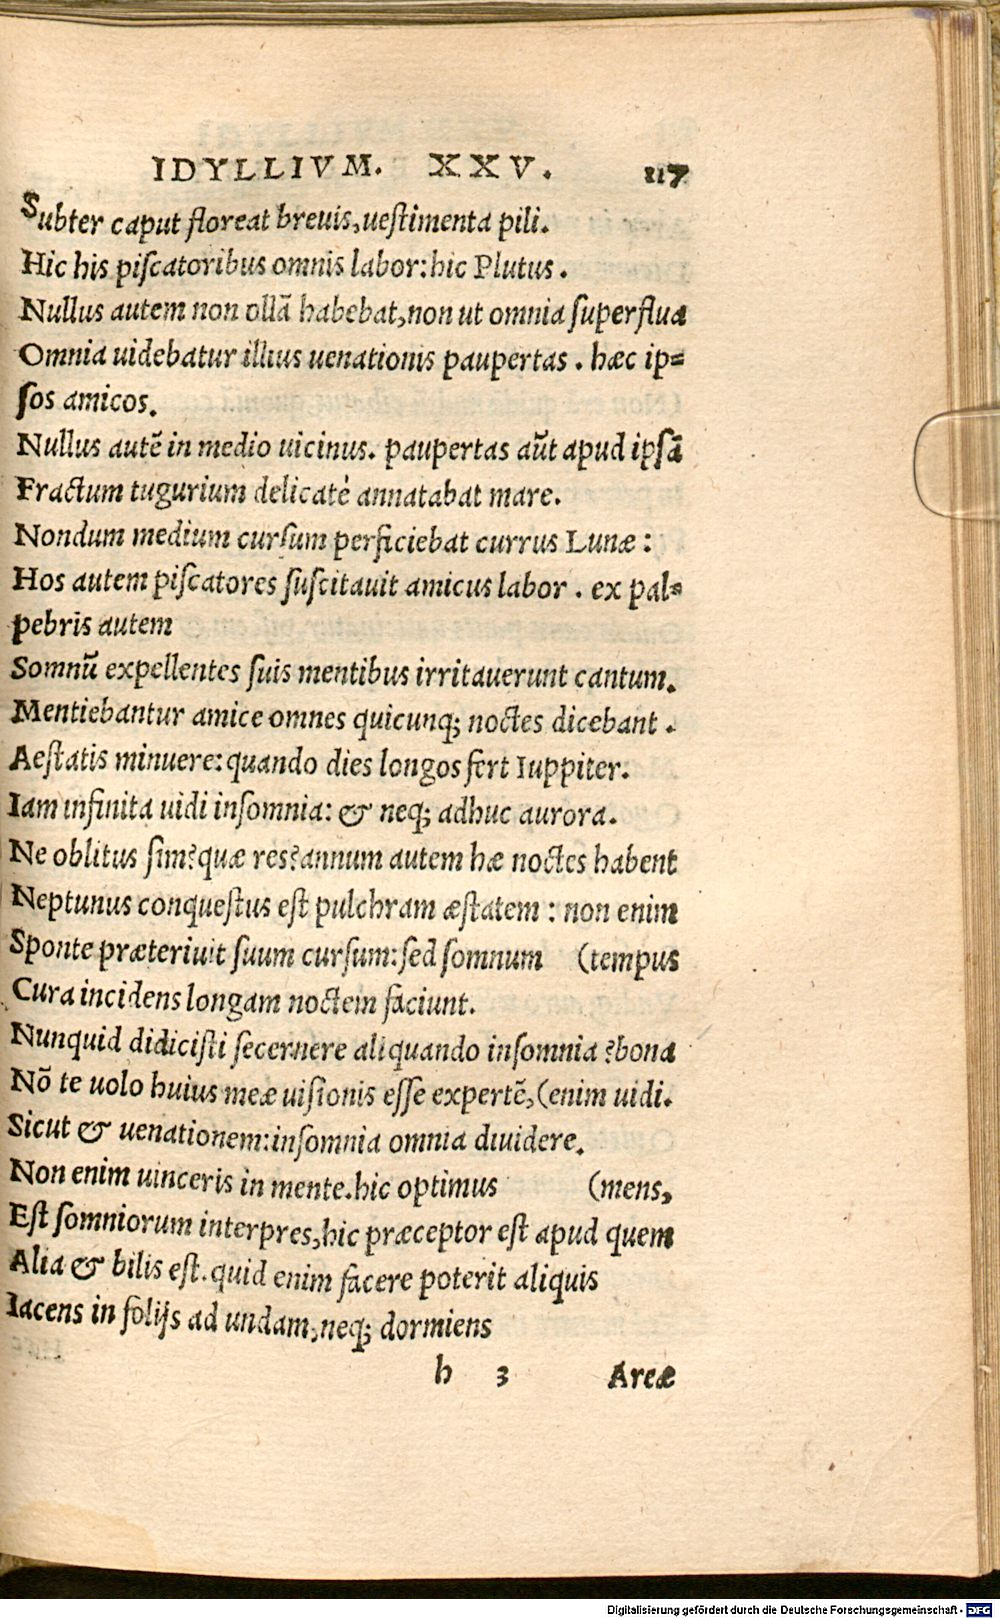 IDYLLIVM. XXV. 117
Subter caput floreat breuis,uestimenta pili.
Hic his piscatoribus omnis labor:hic Plutus.
Nullus autem non ollā habebat,non ut omnia superflua
Omnia uidebatur illius uenationis paupertas. hæc ip=
sos amicos.
Nullus autē in medio uicinus. paupertas aūt apud ipsā
Fractum tugurium delicatè annatabat mare.
Nondum medium cursum perficiebat currus Lunæ:
Hos autem piscatores suscitauit amicus labor. ex pal=
pebris autem
Somnū expellentes suis mentibus irritauerunt cantum.
Mentiebantur amice omnes quicunq; noctes dicebant.
Aestatis minuere:quando dies longos fert Iuppiter.
Iam infinita uidi insomnia: & neq; adhuc aurora.
Ne oblitus sim?quæ res?annum autem hæ noctes habent
Neptunus conquestus est pulchram æstatem: non enim
Sponte præteriuit suum cursum:sed somnum (tempus
Cura incidens longam noctem faciunt.
Nunquid didicisti secernere aliquando insomnia?bona
Nō te uolo huius meæ uisionis esse expertē,(enim uidi.
Sicut & uenationem:insomnia omnia diuidere.
Non enim uinceris in mente.hic optimus (mens,
Est somniorum interpres,hic præceptor est apud quem
Alia & bilis est.quid enim facere poterit aliquis
Iacens in folijs ad undam,neq; dormiens
h 3 Areæ
Digitalisierung gefördert durch die Deutsche Forschungsgemeinschaft - DFG